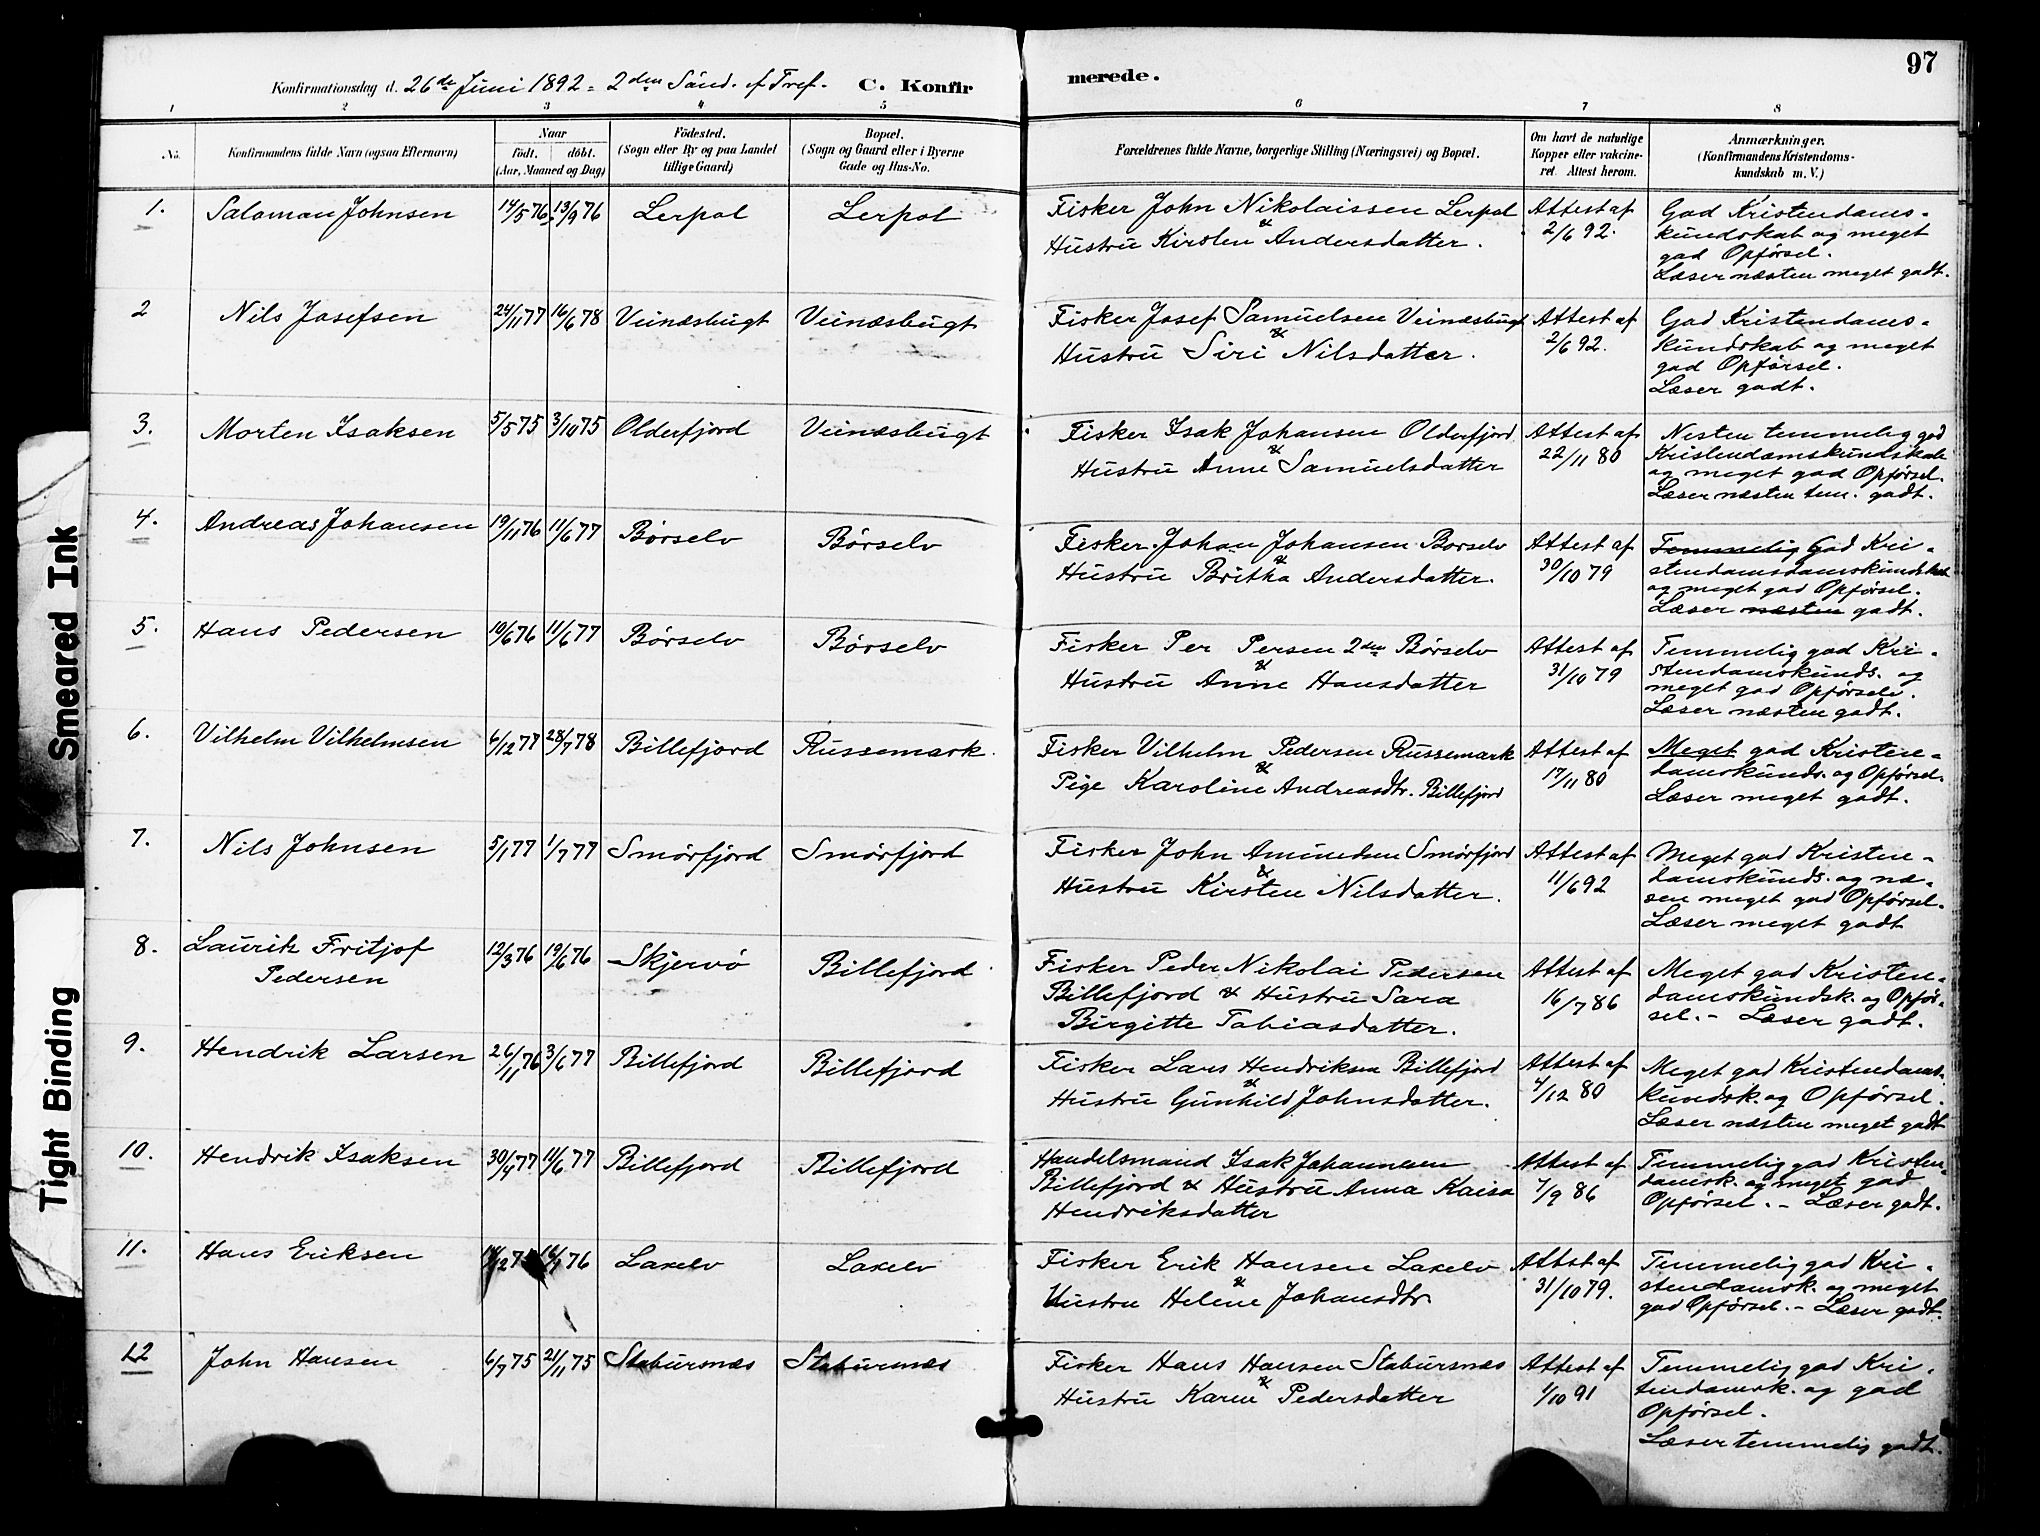 97
Konfirmationsdag d. 26de Juni 1892 = 2den Sönd. ef Tref. C. Konfirmerede.
1 2 3 4 5 6 7 8
No. Konfirmandens fulde Navn (ogsaa Efternavn) Naar födt. döbt. (Aar, Maaned og Dag) Födested. (Sogn eller By og paa Landet tillige Gaard) Bopæl. (Sogn og Gaard eller i Byerne Gade og Hus-No. Forældrenes fulde Navne, borgerlige Stilling (Næringsvei) og Bopæl. Om havt de naturlige Kopper eller vakcineret. Attest herom. Anmærkninger. (Konfirmandens Kristendomskundskab m. V.)
1. Salomon Johnsen 14/5 76 13/9 76 Lerpol Lerpol Fisker John Nikolaissen Lerpol Attest af God Kristendoms-
& Hustru Kirsten Andersdatter. 2/6 92. kundskab og meget
god Opförsel.
Læser næsten meget godt.
2 Nils Josefsen 24/11 77 16/6 78 Veinæsbugt Veinæsbugt Fisker Josef Samuelsen Veinæsbugt Attest af God Kristendoms-
& Hustru Siri Nilsdatter. 2/6 92. kundskab og meget
god Opförsel.
Læser godt.
3. Morten Isaksen 5/5 75 3/10 75 Olderfjord Veinæsbugt Fisker Isak Johansen Olderfjord Attest af Nesten temmelig god
& Hustru Anne Samuelsdatter 22/11 80 Kristendomskundskab
og meget god Opförsel.
Læser næsten tem. godt.
4. Andreas Johansen 19/11 76 11/6 77 Börselv Börselv Fisker Johan Johansen Borselv Attest af Temmelig God Kri-
& Hustru Britha Andersdatter. 30/10 79 stendomsdomskundskab
og meget god Opförsel.
Læser næsten godt.
5. Hans Pedersen 10/6 76 11/6 77 Börselv Börselv Fisker Per Persen 2den Börselv Attest af Temmelig god Kri-
& Hustru Anne Hansdatter 31/10 79 stendomskunds. og
meget god Opförsel.
Læser næsten godt.
6. Vilhelm Vilhelmsen 6/12 77 28/7 78 Billefjord Russemark. Fisker Vilhelm Pedersen Russemark Attest af Meget god Kristen-
& Pige Karoline Andreasdtr. Billefjord 17/11 80 domskunds. og Opförsel.
Læser meget godt.
7. Nils Johnsen 5/1 77 1/7 77 Smörfjord Smörfjord Fisker John Amundsen Smörfjord Attest af Meget god Kristen-
& Hustru Kirsten Nilsdatter. 11/6 92 domskunds. og næ-
sen meget god Opförsel.
Læser meget godt
8. Laurik Fritjof 12/3 76 19/6 76 Skjervö Billefjord Fisker Peder Nikolai Pedersen Attest af Meget god Kristen-
Pedersen Billefjord & Hustru Sara 16/7 86 domskundsk. og Opför-
Birgitte Tobiasdatter. sel. - Læser godt.
9. Hendrik Larsen 26/11 76 3/6 77 Billefjord Billefjord Fisker Lars Hendriksen Billefjord Attest af Meget god Kristendoms-
& Hustru Gunhild Johnsdatter. 4/12 80 kundsk. og Opförsel.
Læser næsten meget godt
10. Hendrik Isaksen 30/4 77 11/6 77 Billefjord Billefjord Handelsmand Isak Johannesen Attest af Temmelig god Kristen-
Billefjord & Hustru Anna Kaisa 7/9 86 domsk. og meget god
Hendriksdatter Opförsel. - Læser godt.
11. Hans Eriksen Laxelv Laxelv Fisker Erik Hansen Laxelv Attest af Temmelig god Kri-
& Hustru Helene Johansdtr 31/10 79. stendomsk. og meget
god Opförsel. - Læser godt.
12 John Hansen 6/7 75 21/11 75 Stabursnæs Stabursnæs Fisker Hans Hansen Stabursnæs Attest af Temmelig god Kri-
& Hustru Karen Pedersdatter 1/10 91 tendomsk. og god
Opförsel.
Læser temmelig godt.
Smeared Ink
Tight Binding